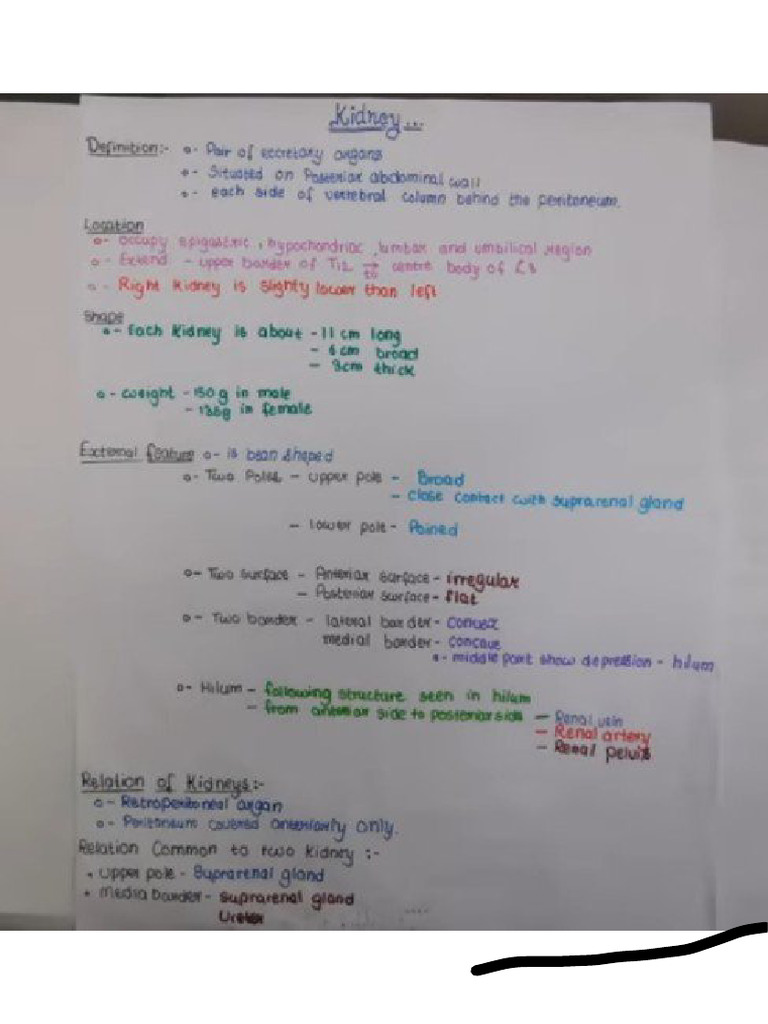 Kidney...
Definition:- o- Pair of excretory organs
o- Situated on Posterior abdominal wall
o- each side of vertebral column behind the peritoneum.
Location
o- occupy epigastric, hypochondriac, lumbar and umbilical region
o- Extend - upper border of T12 → to centre body of L3
o- Right Kidney is slighty lower than left
Shape
o- Each Kidney is about - 11 cm long
- 6 cm broad
- 3cm thick
o- weight - 150 g in male
- 135g in female
External feature o- is bean shaped
o- Two Poles - upper pole - Broad
- close contact with suprarenal gland
- lower pole - Poined
o- Two surface - Anterior surface - irregular
- Posterior surface - flat
o- Two border - lateral border - convex
medial border - concave
o- middle part show depression - hilum
o- Hilum - following structure seen in hilum
- from anterior side to posterior side - Renal vein
- Renal artery
- Renal pelvis
Relation of Kidneys:-
o- Retroperitoneal organ
o- Peritoneum covered anteriorly only.
Relation Common to two Kidney :-
• upper pole - Suprarenal gland
• Media border - suprarenal gland
Ureter